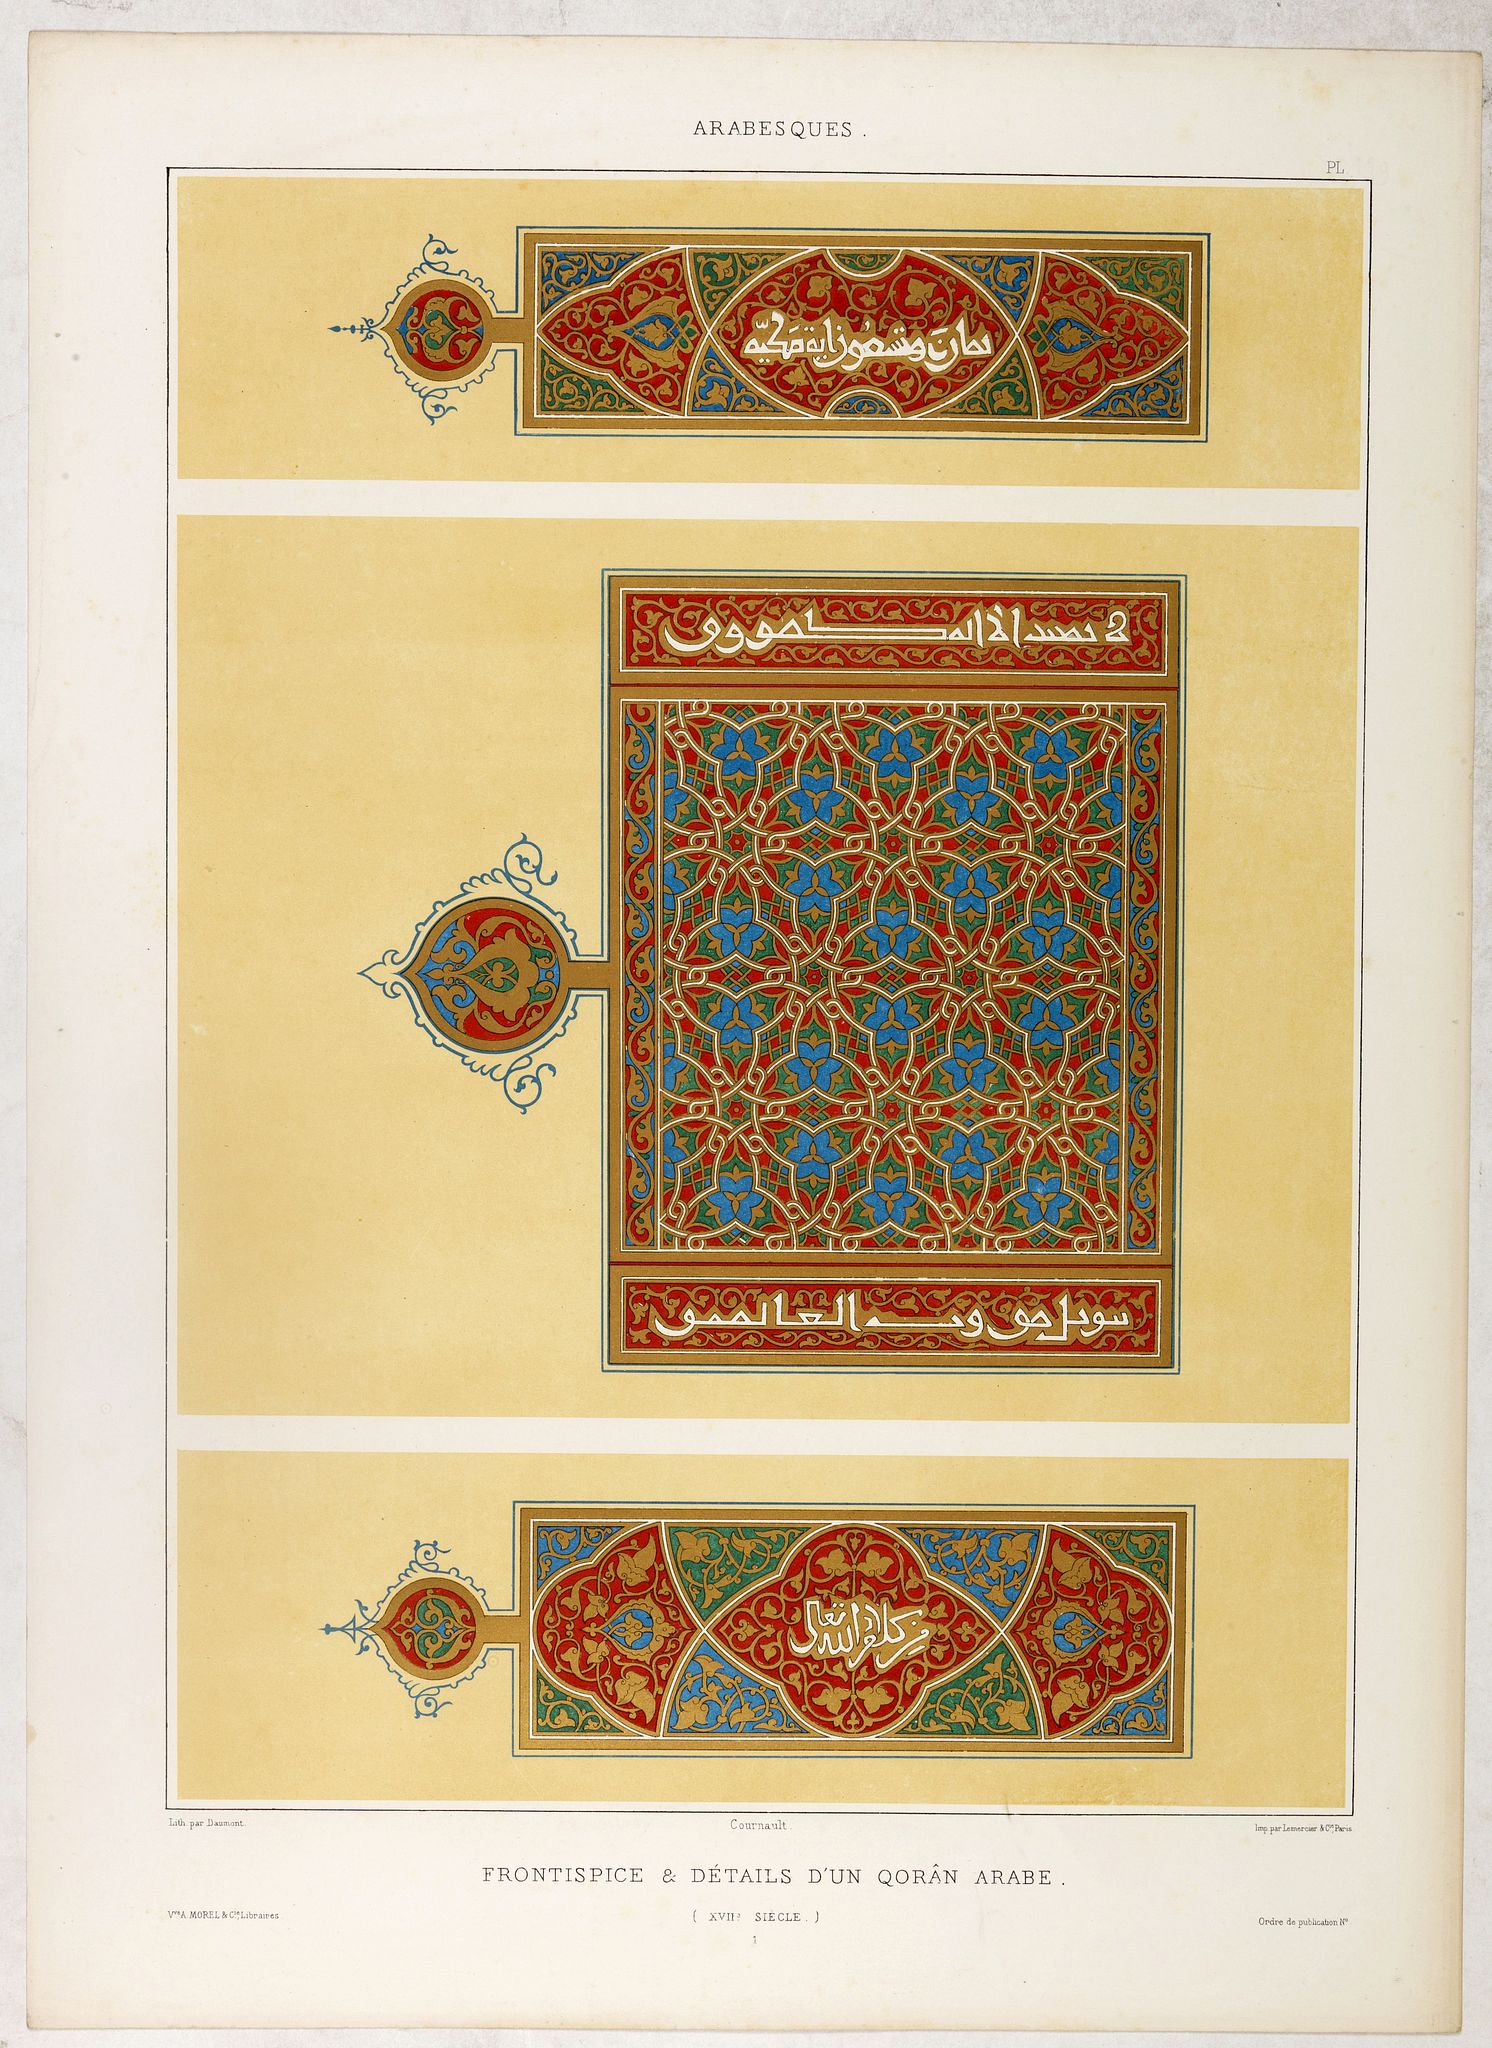 ARABESQUES.
PL.
ثمان وتسعون اية مكيّه
لا يمسه الا المطهرون
تنزيل من رب العالمين
من كلام الله تعالى
Lith. par Daumont.
Cournault.
Imp. par Lemercier & Cie, Paris.
FRONTISPICE & DÉTAILS D'UN QORÂN ARABE.
Vve A. MOREL & Cie Libraires.
( XVIIe SIÈCLE. )
Ordre de publication No
1